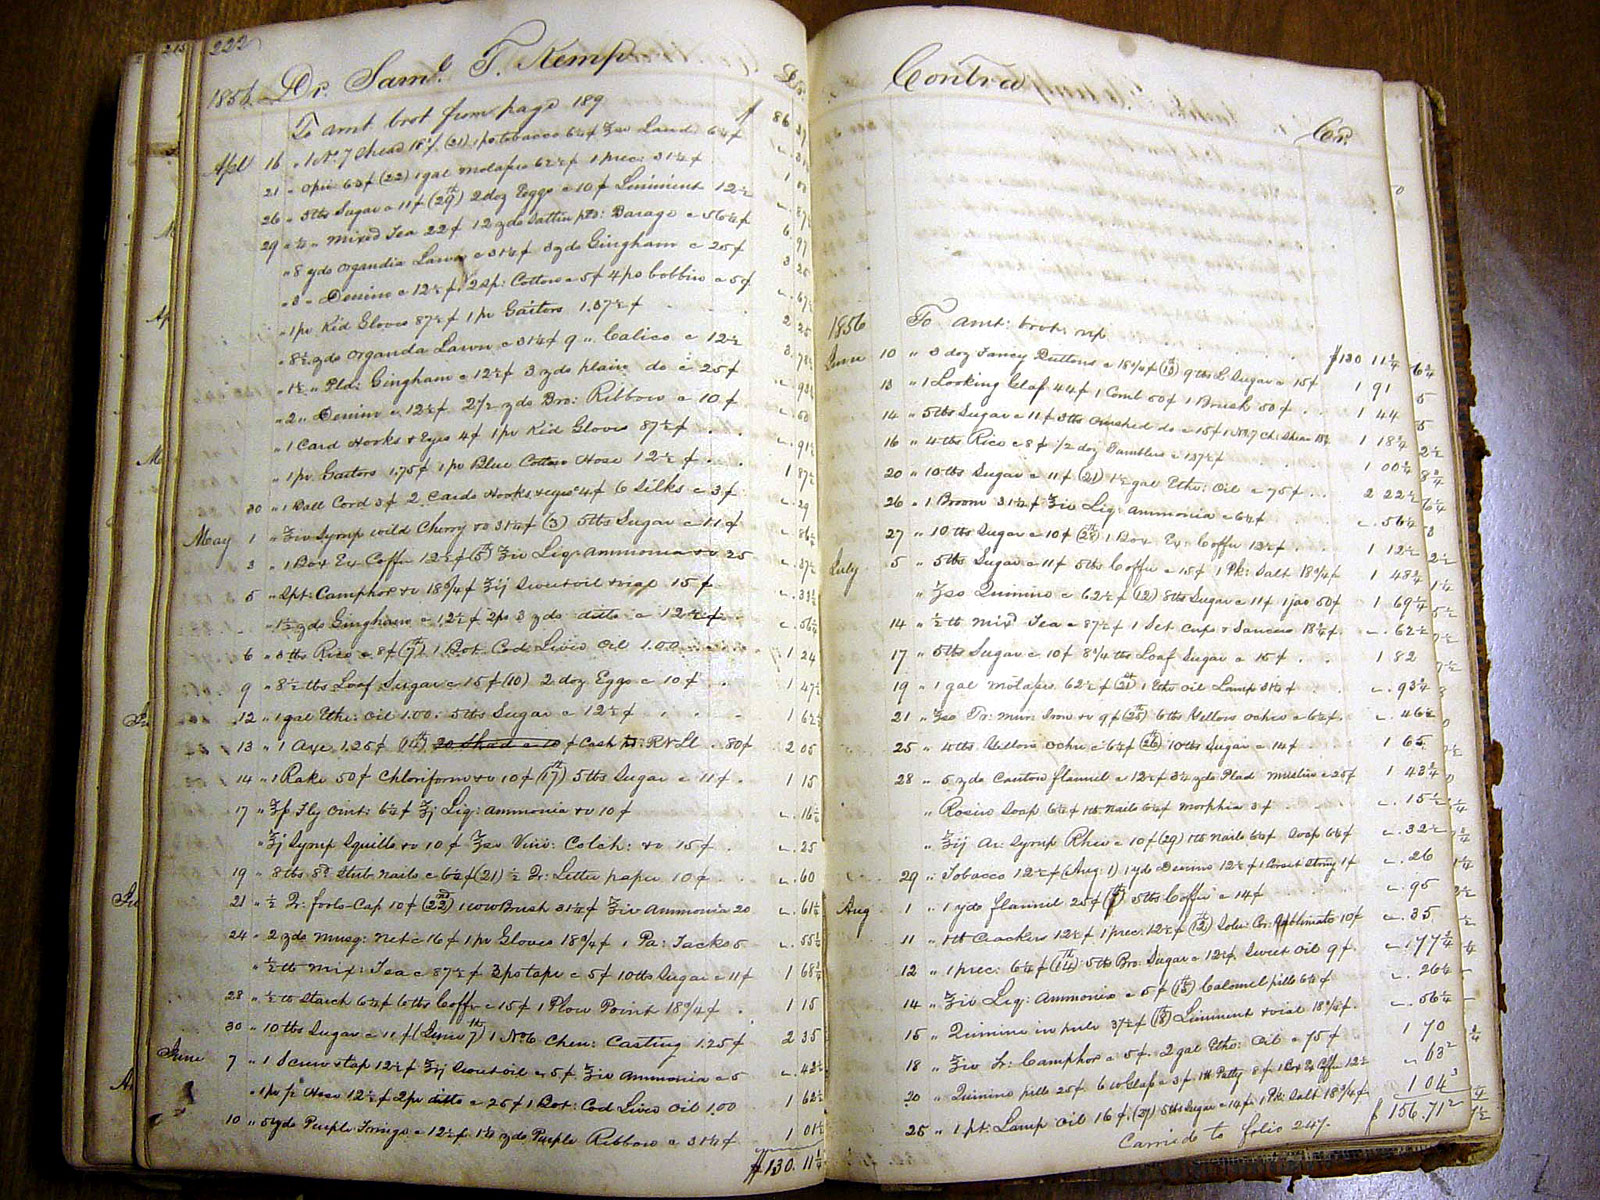 222
1856 Dr. Saml. T. Kemp Dr.
To amt brot from page 189 $ 86
Apl 16 " 1 No. 7 (21) 1 po tobacco 6¼¢ Laud: 6¼¢
21 " Opii 6¼¢ (22) 1 gal Molasses 62½¢ 1 prec: 31¼¢ 1
26 " 5 lbs Sugar a 11¢ (29th) 2 doz Eggs a 10¢ Liniment 12½ " 87½
29 " ¼ " Mixed Tea 22¢ 12 yds Sattin Barage a 56¼¢ 6 97
" 8 yds Organdia Lawn a 31¼¢ 3 yds Gingham a 25¢ 3 25
" 3 " Denims a 12½¢ 2 sp: Cotton a 5¢ 4 ps bobbin a 5¢ " 67½
" 1 pr Kid Gloves 87½¢ 1 pr Gaitors 1.37½¢ 2 25
" 8½ yds Organda Lawn a 31¼¢ 9 " Calico a 12½ 3
" 1½ " Pld: Gingham a 12½¢ 3 yds plain do a 25¢ " 93¾
" 2 " Denims a 12½¢ 2½ yds Bro: Ribbon a 10¢ " 50
" 1 Card Hooks & Eyes 4¢ 1 pr Kid Gloves 87½¢ " 91½
" 1 pr Gaitors 1.75¢ 1 pr Blue Cotton Hose 12½¢ 1 87½
30 " 1 Ball Cord 3¢ 2 Cards Hooks & eyes 4¢ 6 Silks a 3¢ " 29
May 1 " ℥iv Syrup wild Cherry 31¼¢ (3) 5 lbs Sugar a 11¢ " 86¼
3 " 1 Box Ex Coffe 12½¢ (5th) ℥iv Liq: Ammonia 25 " 37½
5 " Spt: Camphor 18¾¢ ℥ij Sweet oil & vial 15¢ " 33¾
" 1½ yds Gingham a 12½¢ 2 ps 3 yds ditto a 12½¢ " 56¼
6 " 3 lbs Rice a 8¢ (7th) 1 Bot. Cod Liver Oil 1.00 1 24
9 " 8½ lbs Loaf Sugar a 15¢ (10) 2 doz Eggs a 10¢ 1 47½
12 " 1 gal Ethe: Oil 1.00 5 lbs Sugar a 12½¢ 1 62½
13 " 1 Axe 1.25¢ (14th) 20 Shad a 10¢ Cash 80¢ 2 05
14 " 1 Rake 50¢ Chloriform 10¢ (17th) 5 lbs Sugar a 11¢ 1 15
17 " Fly Oint: 6¼¢ ℥j Liq: Ammonia 10¢ " 16¼
" ℥j Syrup Squills 10¢ ℥ss Vini: Colch: 15¢ " 25
19 " 8 lbs 8d Nails a 6¼¢ (21) ½ Qr: Letter paper 10¢ " 60
21 " ½ Qr: fools-Cap 10¢ (22nd) 1 Brush 31¼¢ ℥iv Ammonia 20 " 61¼
24 " 2 yds Musq: Net a 16¢ 1 pr Gloves 18¾¢ 1 Pa: Tacks 5 " 55¾
" ½ lb Mix: Tea a 87½¢ 3 ps tape a 5¢ 10 lbs Sugar a 11¢ 1 68¾
28 " ½ lb Starch 6¼¢ 6 lbs Coffe a 15¢ 1 Plow Point 18¾¢ 1 15
30 " 10 lbs Sugar a 11¢ (June 7th) 1 No 6 Chen: Casting 1.25¢ 2 35
June 7 " 1 Screw 12½¢ ℥ij Sweet oil a 5¢ ℥iv Ammonia a 5 " 42½
" 1 pr Hose 12½¢ 2 pr ditto a 25¢ 1 Bot: Cod Liver Oil 1.00 1 62½
10 " 5 yds Purple Fringe a 12½¢ 1¼ yds Purple Ribbon a 31¼¢ 1 01½
$130. 11¼
Contra Cr.
1856 To amt: brot: up $130 11¼
June 10 " 3 doz Fancy Buttons a 18¾¢ (13th) 9 lbs L. Sugar a 15¢ 1 91
13 " 1 Looking Glass 44¢ 1 Comb 50¢ 1 Brush 50¢ 1 44
14 " 5 lbs Sugar a 11¢ 3 lbs crushed do a 15¢ 1 No. 7 1 18¾
16 " 4 lbs Rice a 8¢ ½ doz Tumblers a 137½¢ 1 00½
20 " 10 lbs Sugar a 11¢ (21) 1½ gal Ethe: Oil a 75¢ 2 22½
26 " 1 Broom 31¼¢ ℥iv Liq: Ammonia a 6¼¢ " 56¼
27 " 10 lbs Sugar a 10¢ (28th) 1 Box Ex: Coffe 12½¢ 1 12½
July 5 " 5 lbs Sugar a 11¢ 5 lbs Coffe a 15¢ 1 Pk: Salt 18¾¢ 1 48¾
" ℥ss Quinine a 62½¢ (12) 8 lbs Sugar a 11¢ 1 jar 50¢ 1 69¼
14 " ½ lb Mixd Tea a 87½¢ 1 Set Cups & Saucers 18¾¢ " 62½
17 " 5 lbs Sugar a 10¢ 8¾ lbs Loaf Sugar a 15¢ 1 82
19 " 1 gal Molasses 62½¢ (21st) 1 Ethe oil Lamp 31¼¢ " 93¾
21 " ℥ss Tr: Mur: Iron 9¢ (25th) 6 lbs Yellow Ochre a 6¼¢ " 46½
25 " 4 lbs Yellow Ochre a 6¼¢ (26th) 10 lbs Sugar a 14¢ 1 65
28 " 5 yds Canton flannel a 12½¢ 3¼ yds Plad Muslin a 25¢ 1 43¾
" Rosin Soap 6¼¢ 1 lb Nails 6¼¢ Morphia 3¢ " 15½
" ℥ij Ar: Syrup Rhei a 10¢ (29) 1 lb Nails 6¼¢ Soap 6¼¢ " 32½
29 " Tobacco 12½¢ (Aug: 1) 1 yd Denims 12½¢ 1 Corset String 1¢ " 26
Aug 1 " 1 yd flannel 25¢ 5 lbs Coffe a 14¢ " 95
11 " 1 lb Crackers 12½¢ 1 prec: 12½¢ (12th) 10¢ " 35
12 " 1 prec: 6¼¢ (14th) 5 lbs Bro: Sugar a 12½¢ Sweet Oil 9¢ " 77¾
14 " ℥iv Liq: Ammonia a 5¢ (15th) Calomel pills 6¼¢ " 26¼
15 " Quinine in pills 37½¢ (18th) Liniment & vial 18¾¢ " 56¼
18 " ℥iv Tr: Camphor a 5¢ 2 gal Ethe: Oil a 75¢ 1 70
20 " Quinine pills 25¢ 6 W Glass a 3¢ 1 lb Putty 8¢ 1 Box Ex Coffe 12½ " 63½
25 " 1 pt: Lamp Oil 16¢ (27) 5 lbs Sugar a 14¢ 1 Pk: Salt 18¾¢ 1 04¾
Carried to folio 247. $156.71½